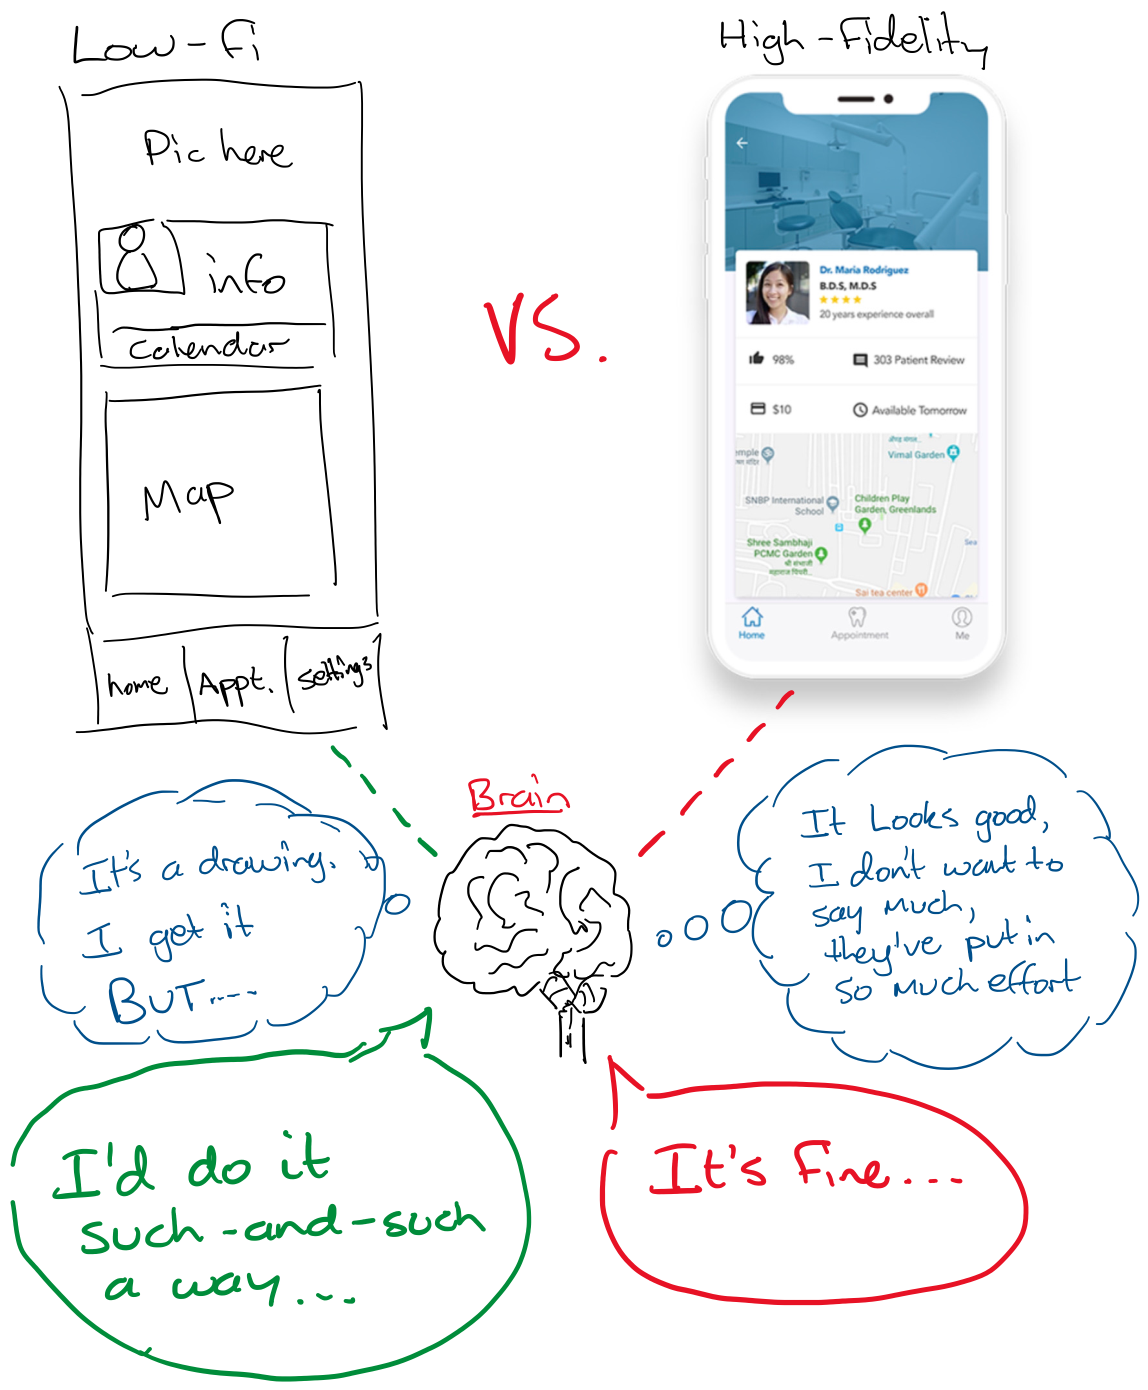 Low-fi
High-Fidelity
Pic here
info
Calendar
Map
home
Appt.
settings
VS.
Dr. Maria Rodriguez
B.D.S, M.D.S
20 years experience overall
98%
303 Patient Review
$10
Available Tomorrow
Vimal Garden
SNBP International
School
Children Play
Garden, Greenlands
Shree Sambhaji
PCMC Garden
श्री संभाजी
Sai tea center
Home
Appointment
Me
Brain
It's a drawing.
I get it
BUT....
It Looks good,
I don't want to
say much,
they've put in
so much effort
I'd do it
such-and-such
a way...
It's Fine...